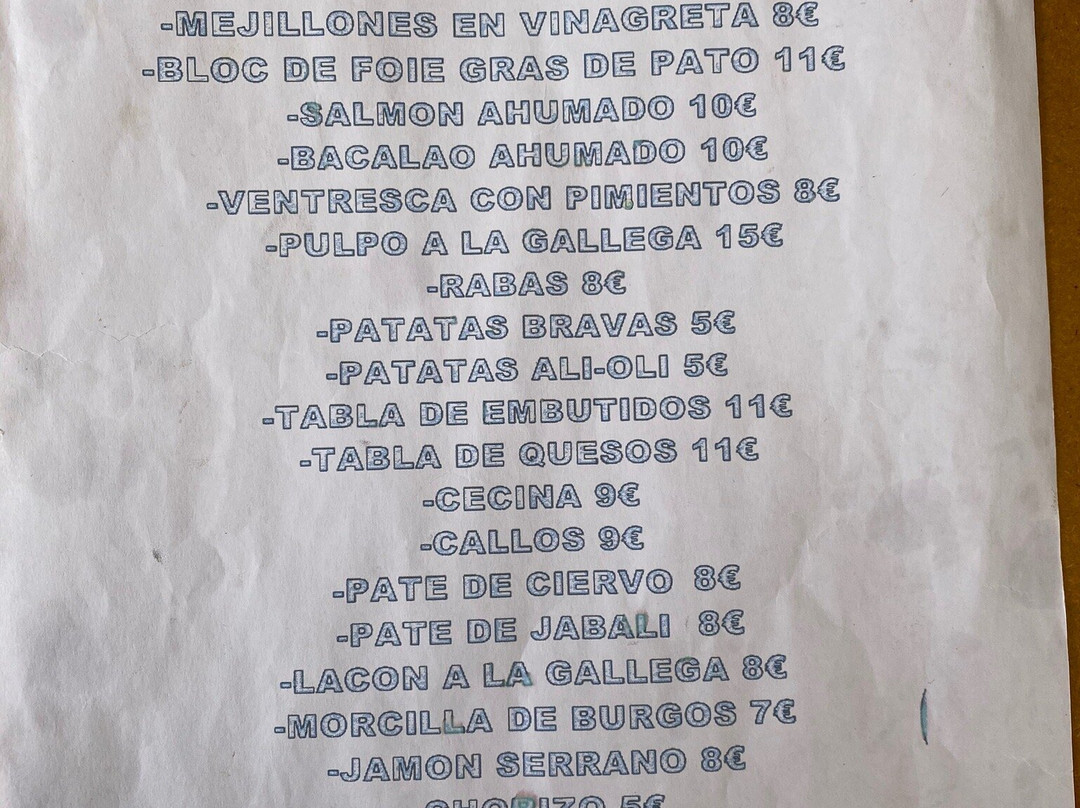 -MEJILLONES EN VINAGRETA 8€
-BLOC DE FOIE GRAS DE PATO 11€
-SALMON AHUMADO 10€
-BACALAO AHUMADO 10€
-VENTRESCA CON PIMIENTOS 8€
-PULPO A LA GALLEGA 15€
-RABAS 8€
-PATATAS BRAVAS 5€
-PATATAS ALI-OLI 5€
-TABLA DE EMBUTIDOS 11€
-TABLA DE QUESOS 11€
-CECINA 9€
-CALLOS 9€
-PATE DE CIERVO 8€
-PATE DE JABALI 8€
-LACON A LA GALLEGA 8€
-MORCILLA DE BURGOS 7€
-JAMON SERRANO 8€
CHORIZO 5€